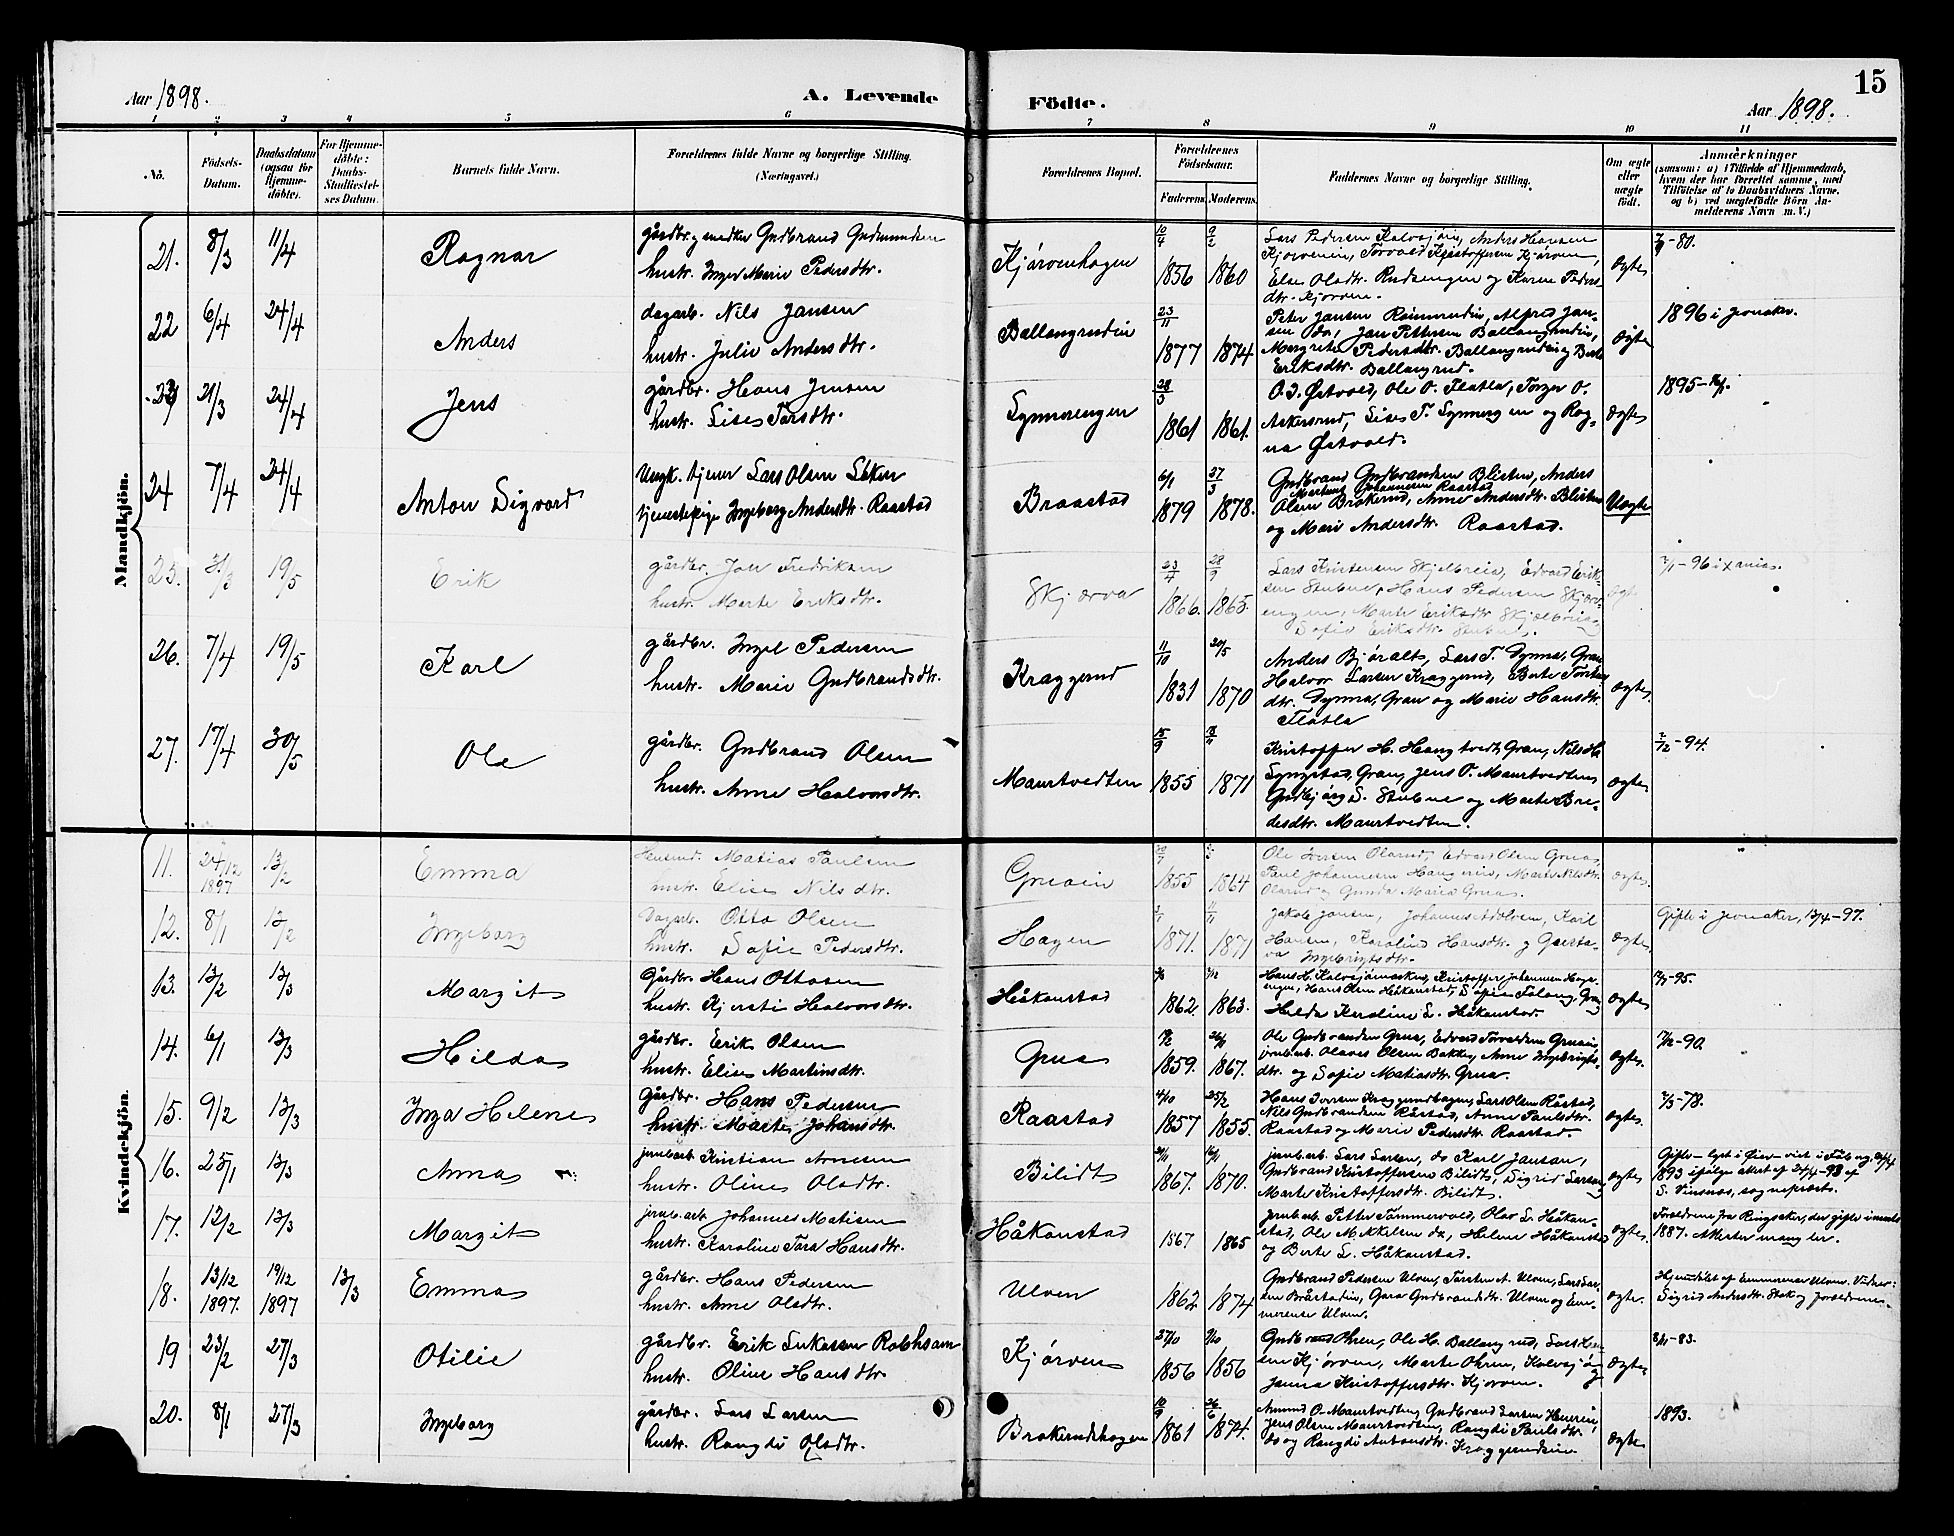 15
Aar 1898. A. Levende Födte. Aar 1898.
1 2 3 4 5 6 7 8 9 10 11
No. Födsels-Datum. Daabsdatum (ogsaa for Hjemme-döbte). For Hjemme-döbte: Daabs-Stadfæstel-ses Datum. Barnets fulde Navn. Forældrenes fulde Navne og borgerlige Stilling. (Næringsvei.) Forældrenes Bopæl. Forældrenes Födselsaar. Faderens. Moderens. Faddernes Navne og borgerlige Stilling. Om ægte eller uægte født. Anmærkninger
(saasom: a) i Tilfælde af Hjemmedaab, hvem der har forrettet samme, med Tilföielse af to Daabsvidners Navne, og b) ved uægtefödte Börn Anmelderens Navn m. V.)
Mandkjön.
21. 8/3 11/4 Ragnar gårdbr. og snedker Gudbrand Gudmundsen
hustr. Inger Marie Pedersdtr. Kjørvenhagen 10/4 1856 9/2 1860
Lars Pedersen Kalvsjøin, Anders Hansen
Kjørvenin, Torvald Kristoffersen Kjørven,
Else Olsdtr. Rudsengen og Karen Peders-
dtr. Kjørven. ægte -80.
22 6/4 24/4 Anders dagarb. Nils Jansen
hustr. Julie Andersdtr. Ballangrudin 23/11 1877 1874
Peter Jansen Alfred Jan-
sen do, Jan Pettersen Ballangrudin,
Margrete Pedersdtr. Ballangrudin og Berte
Eriksdtr. Ballangrud. ægte 1896 i Jevnaker.
23 21/3 24/4 Jens gårdbr. Hans Jensen
hustr. Lise Larsdtr. Synnerengen 28/3 1861 1861.
O. J. Østvold, Ole O. Flatla, Torger O.
Askersrud, Lise T. Synnerengen og Rag-
na Østvold. ægte 1895
24 7/4 24/4 Anton Sigvard Ungk. tjener Lars Olsen
tjenestepige Ingeborg Andersdtr. Raastad Braastad 6/1 1879 27/3 1878.
Gudbrand Gudbrandsen Blisten, Anders
Martinus Johannesen Raastad
Olsen Brakerud, Anne Andersdtr. Blisten
og Mari Andersdtr. Raastad. Uægte
25. 31/3 19/5 Erik gårdbr. Jon Fredriksen
hustr. Marte Eriksdtr. Skjærva 23/4 1866. 28/9 1865.
Lars Kristensen Skjelbreia, Edvard Erik-
sen Stubne, Hans Pedersen Skjærv-
engen, Marte Eriksdtr. Skjelbreia,
Sofie Eriksdtr. Stubne. ægte -96 i Xania.
26. 7/4 19/5 Karl gårdbr. Ingel Pedersen
hustr. Marie Gudbrandsdtr. Kraggerud 11/10 1831 20/5 1870
Anders Bjøralt, Lars T. Dynna, Gran
Halvor Larsen Kraggerud, Berte Torsten
dtr. Dynna, Gran og Marie Hansdtr.
Flatla ægte.
27. 17/4 30/5 Ole gårdbr. Gudbrand Olsen
hustr. Anne Halvorsdtr. Maurtvedten 15/9 1855 1871
Kristoffer H. Haugtvedt, Gran, Nils H.
Lyngstad, Gran, Jens O. Maurtvedten,
Gudbjørg S. Stubne og Marte Bre-
desdtr. Maurtvedten. ægte. 2/12-94.
Kvindekjön.
11. 24/12 1897 13/2 Emma Husmd. Matias Paulsen
hustr. Elise Nilsdtr. Gruain 1855 1864
Ole Iversen Olarud, Edvard Olsen Grua,
Paul Johannesen Marte Nilsdtr.
Olarud og Gunda Marie Grua. ægte.
12. 8/1 13/2 Ingeborg Dagarb. Otto Olsen
hustr. Sofie Pedersdtr. Hagen 1871. 11/11 1871
Jakob Jansen, Johannes Karl
Hansen, Karoline Hansdtr. og Gusta-
va Ingebrigtsdtr. ægte. Gifte i Jevnaker, 13/4-97.
13. 13/2 13/3 Margit Gårdbr. Hans Ottosen
hustr. Kjersti Halvorsdtr. Håkenstad 1862. 1863.
Hans H. Kalvsjømarken, Kristoffer Johannesen Hage-
engen, Hans Olsen Håkenstad, Sofie Gran,
Helda Karoline L. Håkenstad. ægte. -95.
14. 6/1 13/3 Hilda gårdbr. Erik Olsen
hustr. Elise Martinsdtr. Grua 1859. 1867.
Ole Gudbrandsen Grua, Edvard Torvaldsen Gruain,
jernb.arb. Olaves Olsen Bakken, Anne Ingebrigts-
dtr. og Sofie Matiasdtr. Grua. ægte. -90.
15. 9/2 13/3 Inga Helene Gårdbr. Hans Pedersen
hustr. Marte Johansdtr. Raastad 4/10 1857 25/2 1855.
Hans Iversen Kraggerudhagen, Lars Olsen Råstad,
Nils Gudbrandsen Råstad, Anne Paulsdtr.
Raastad og Marie Pedersdtr. Raastad. ægte. -78.
16. 25/1 13/3 Anna jernb.arb. Kristian Arnesen
hustr. Oline Olsdtr. Bilidt 1867. 1870.
jernb.arb. Lars Larsen, do Karl Jansen,
Gudbrand Kristoffersen Bilidt, Sigrid Larsen,
Marte Kristoffersdtr. Bilidt. ægte
Gifte - lyst i Øier - viet i
1893 ifølge attest af 24/4-93 af
S. Vinsnes, sogneprest.
17. 12/2 13/3 Margit jernb.arb. Johannes Matisen
hustr. Karoline Tara Hansdtr. Håkenstad 1867 1865
Jernb.arb. Petter Tømmervold, Olav L. Håken-
stad, Ole Mikkelsen do, Helene Håkenstad
og Berte L. Håkenstad. ægte.
Forældrene fra Ringsaker, der gifte i
1887. Attester mangler.
18. 13/12 1897. 19/12 1897 13/3 Emma gårdbr. Hans Pedersen
hustr. Anne Olsdtr. Ulven 1862 1874
Gudbrand Pedersen Ulven, Torsten A. Ulven, Lars Lar-
sen Bråstadin, Gudbrandsdtr. Ulven og Em-
merense Ulven. ægte.
Hjemdøbt af Emmerense Ulven. Vidner:
Sigrid Andersdtr. Stak og Forældrene.
19 23/2 27/3 Otilie gårdbr. Erik Lukassen
hustr. Oline Hansdtr Kjørven 27/10 1856 1856
Gudbrand Ohren, Ole H. Ballangrud, Lars Han-
sen Kjørven, Marte Ohren, Kalvsjø og
Janna Kristoffersdtr. Kjørven. ægte. -83.
20. 8/1 27/3 Ingeborg gårdbr. Lars Larsen
hustr. Rangdi Olsdtr. Brakerudhagen 1861 26/6 1874.
Amund O. Maurtvedten, Gudbrand Larsen
Jens Olsen Maurtvedten, Rangdi Paulsdtr.
do og Rangdi Antonsdtr. Kraggerudein. ægte 1893.